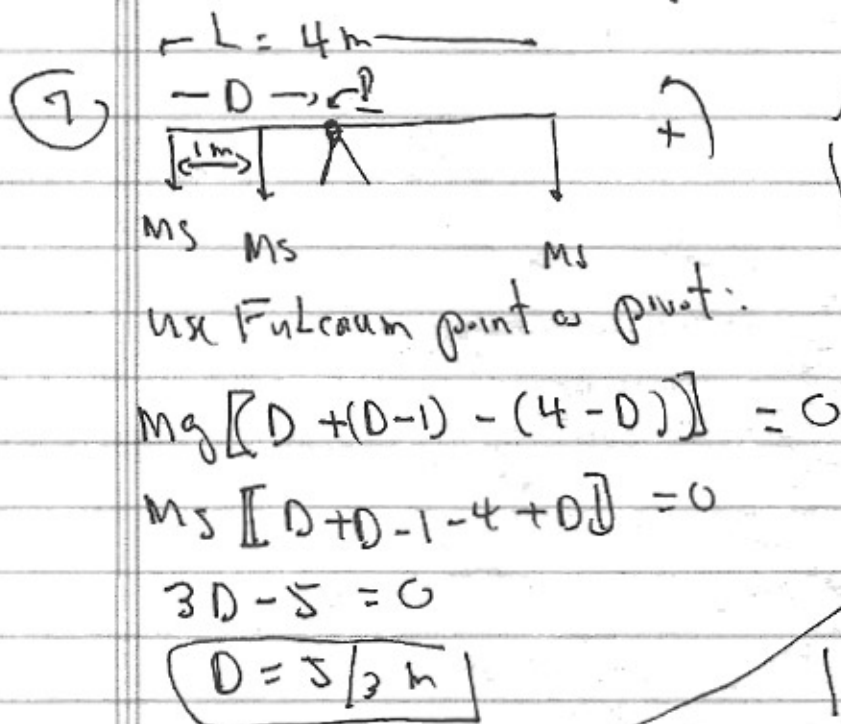 L = 4m
7
D → P
1m
+
Mg Mg Mg
Use Fulcrum point as pivot:
Mg[D+(D-1)-(4-D)] = 0
Mg[D+D-1-4+D] = 0
3D-5 = 0
D = 5/3 m